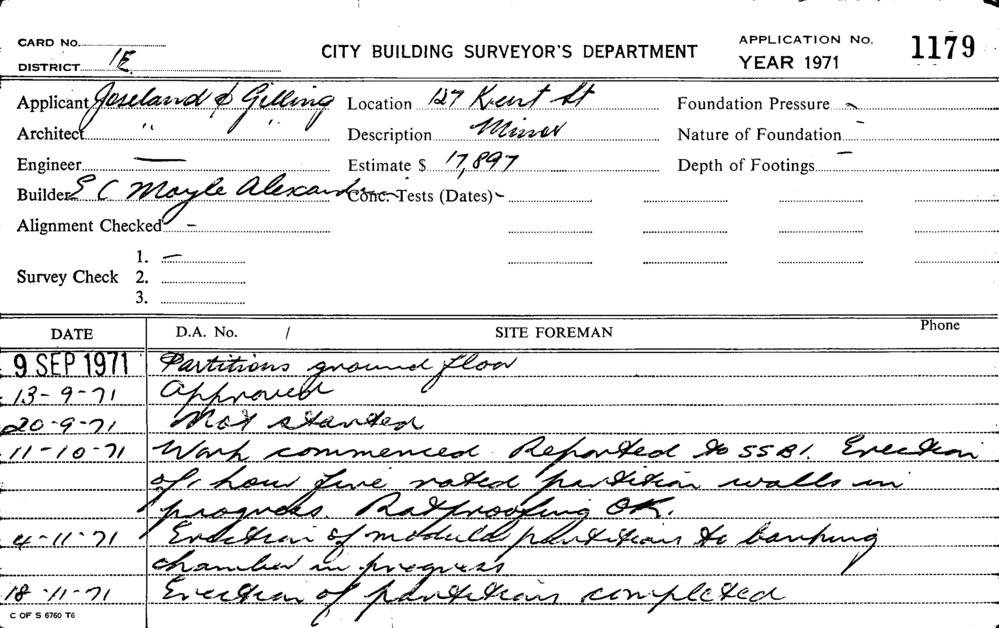 CARD No.
DISTRICT 1E
CITY BUILDING SURVEYOR'S DEPARTMENT
APPLICATION No. 1179
YEAR 1971
Applicant Joseland & Gilling Location 127 Kent St Foundation Pressure -
Architect " " Description Minor Nature of Foundation -
Engineer — Estimate $ 17,897 Depth of Footings -
Builder E C Moyle Alexandria Conc. Tests (Dates) -
Alignment Checked -
Survey Check 1. —
2.
3.
DATE D.A. No. / SITE FOREMAN Phone
9 SEP 1971 Partitions ground floor
13-9-71 Approved
20-9-71 Not started
11-10-71 Work commenced. Reported to SSBI. Erection
of 1 hour fire rated partition walls in
progress. Ratproofing OK.
4-11-71 Erection of modula partitions to banking
chamber in progress
18-11-71 Erection of partitions completed
C OF S 6760 T6